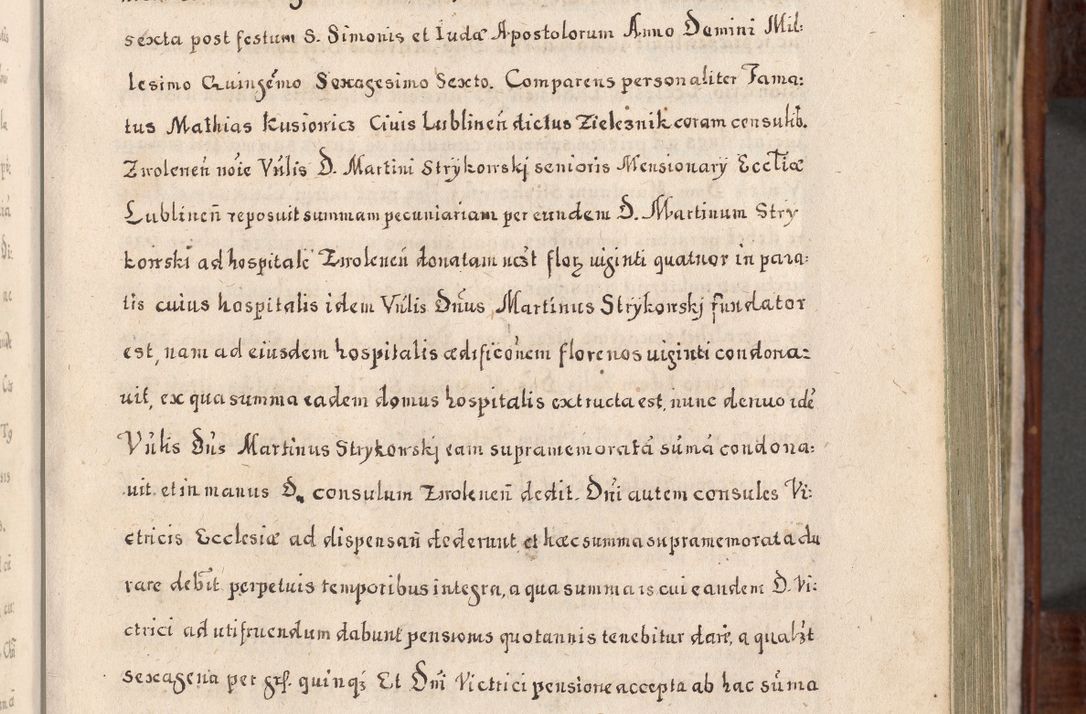 sexta post festum S. Simonis et Iudæ Apostolorum Anno Domini Mil:
lesimo Quingẽmo Sexagesimo Sexto. Comparens personaliter Fama:
tus Mathias Kusiowicz Ciuis Lublineñ dictus Zielesnik coram consulib.
Zwoleneñ nõie Vńlis D. Martini Strykowskj senioris Mensionarÿ Eccl̃iæ
Lublineñ reposuit summam pecuniariam per eundem D. Martinum Stry
kowski ad hospitale Zwoleneñ donatam uc̃zt floꝝ uiginti quatuor in para:
tis cuius hospitalis idem Vńlis Dñus Martinus Strÿkowskj fundator
est, nam ad eiusdem hospitalis ædificõnem florenos uiginti condona:
uit, ex qua summa eadem domus hospitalis extructa est, nunc denuo idẽ
Vńlis Dñs Martinus Strykowskj eam supramemoratã sũmã condona:
uit et in manus D. consulum Zwoleneñ dedit. Dñi autem consules Vi:
ctricis Ecclesiæ ad dispensañ dederunt et hæc summa supramemorata du
rare debt̃ perpetuis temporibus integra, a qua summa is cui eandem D. Vi:
ctrici ad utifruendum dabunt pensionis quotannis tenebitur dare, a qualʒt
sexagena per grſ. quinqʒ Et Dñi Victrici pensione accepta ab hac sũma